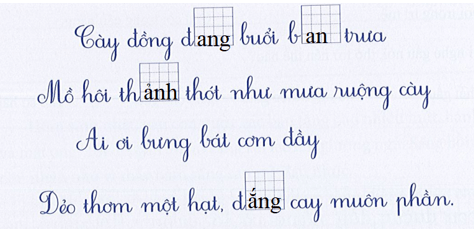 Cày đồng đang buổi ban trưa
Mồ hôi thảnh thót như mưa ruộng cày
Ai ơi bưng bát cơm đầy
Dẻo thơm một hạt, đắng cay muôn phần.